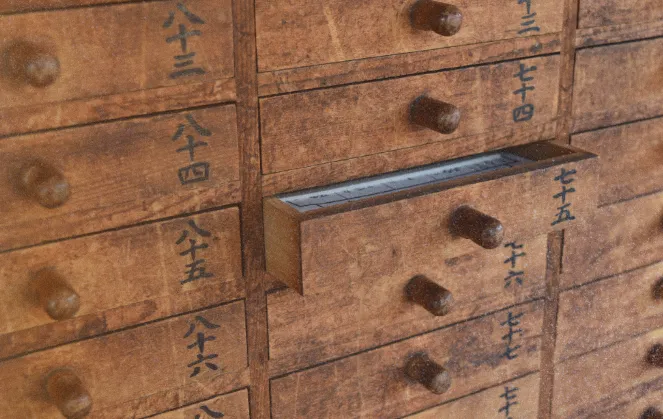 八十三
八十四
八十五
八十六
七十四
七十五
七十六
七十七